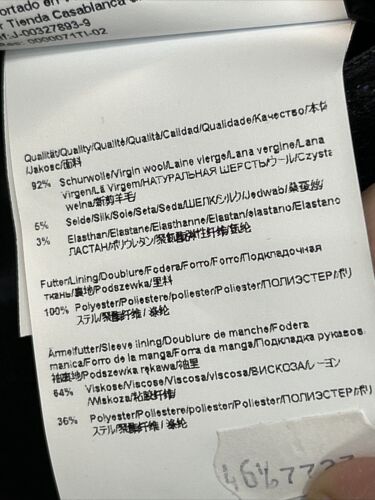 ortado en
r Tienda Casablanca
if:J-00327893-9
Res: 0000071TI-02
Qualität/Quality/Qualité/Qualità/Calidad/Qualidade/Качество/本体
/Jakosc/面料
92% Schurwolle/Virgin wool/Laine vierge/Lana vergine/Lana
virgen/Lã Virgem/НАТУРАЛЬНАЯ ШЕРСТЬ/ウール/Czysta
welna/新剪羊毛/
5% Seide/Silk/Soie/Seta/Seda/ШЕЛК/シルク/Jedwab/桑蚕丝/
3% Elasthan/Elastane/Elasthanne/Elastan/elastano/Elastano
ЛАСТАН/ポリウレタン/聚氨酯弹性纤维/氨纶
Futter/Lining/Doublure/Fodera/Forro/Forro/Подкладочная
ткань/裏地/Podszewka/里料
100% Polyester/Poliestere/poliester/Poliester/ПОЛИЭСТЕР/ポリ
ステル/聚酯纤维/ 涤纶
Ärmelfutter/Sleeve lining/Doublure de manche/Fodera
manica/Forro de la manga/Forro da manga/Подкладка рукавов
袖裏地/Podszewka rękawa/袖里
64% Viskose/Viscose/Viscosa/viscosa/ВИСКОЗА/レーヨン
/Wiskoza/粘胶纤维/
36% Polyester/Poliestere/poliester/Poliester/ПОЛИЭСТЕР/ポリ
ステル/聚酯纤维/ 涤纶